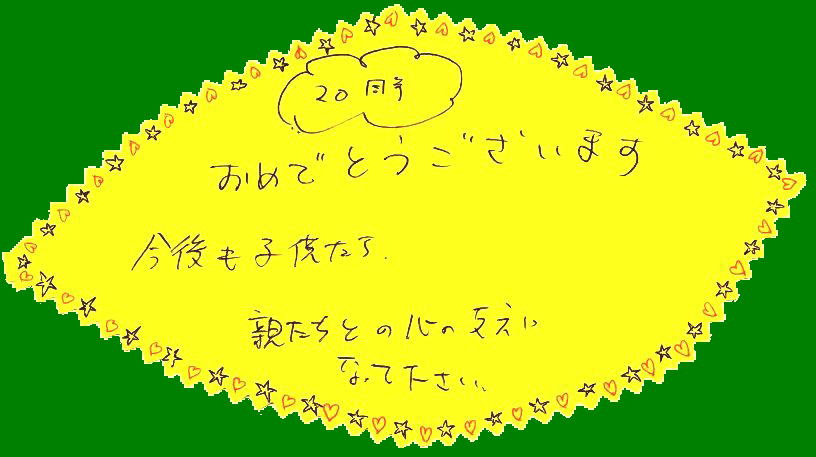 20周年
おめでとうございます
今後も子供たち、
親たちとの心の支えに
なって下さい。